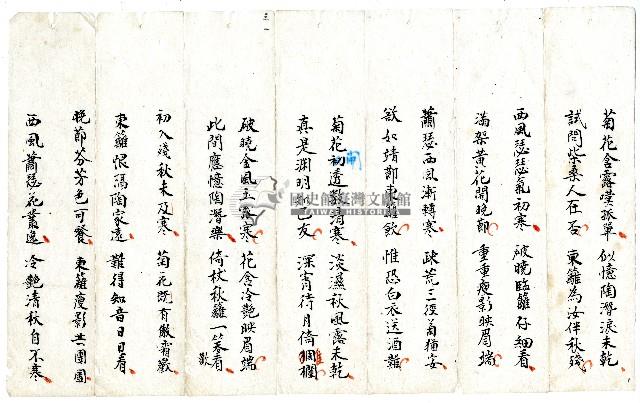 三一
菊花含露嘆孤單 似憶陶潛淚未乾
試問柴桑人在否 東籬為汝伴秋殘
西風瑟瑟氣初寒 破曉臨籬仔細看
滿架黃花開晚節 重重瘦影映眉端
蕭瑟西風漸轉寒 三徑菊猶安
欲如靖節東籬飲 惟恐白衣送酒難
菊花初透清寒 淡濕秋風露未乾
真是淵明已友 深宵待月倚欄
破曉金風玉露寒 花含冷艷映眉端
此間應憶陶潛樂 倚杖秋籬一笑看
歡
初入殘秋未及寒 菊花有傲霜歡
東籬恨隔陶家遠 難得知音日日看
晚節芬芳色可餐 東籬瘦影共團圞
西風蕭瑟花叢逸 冷艷清秋自不寒
國史館臺灣文獻館
TAIWAN HISTORICA